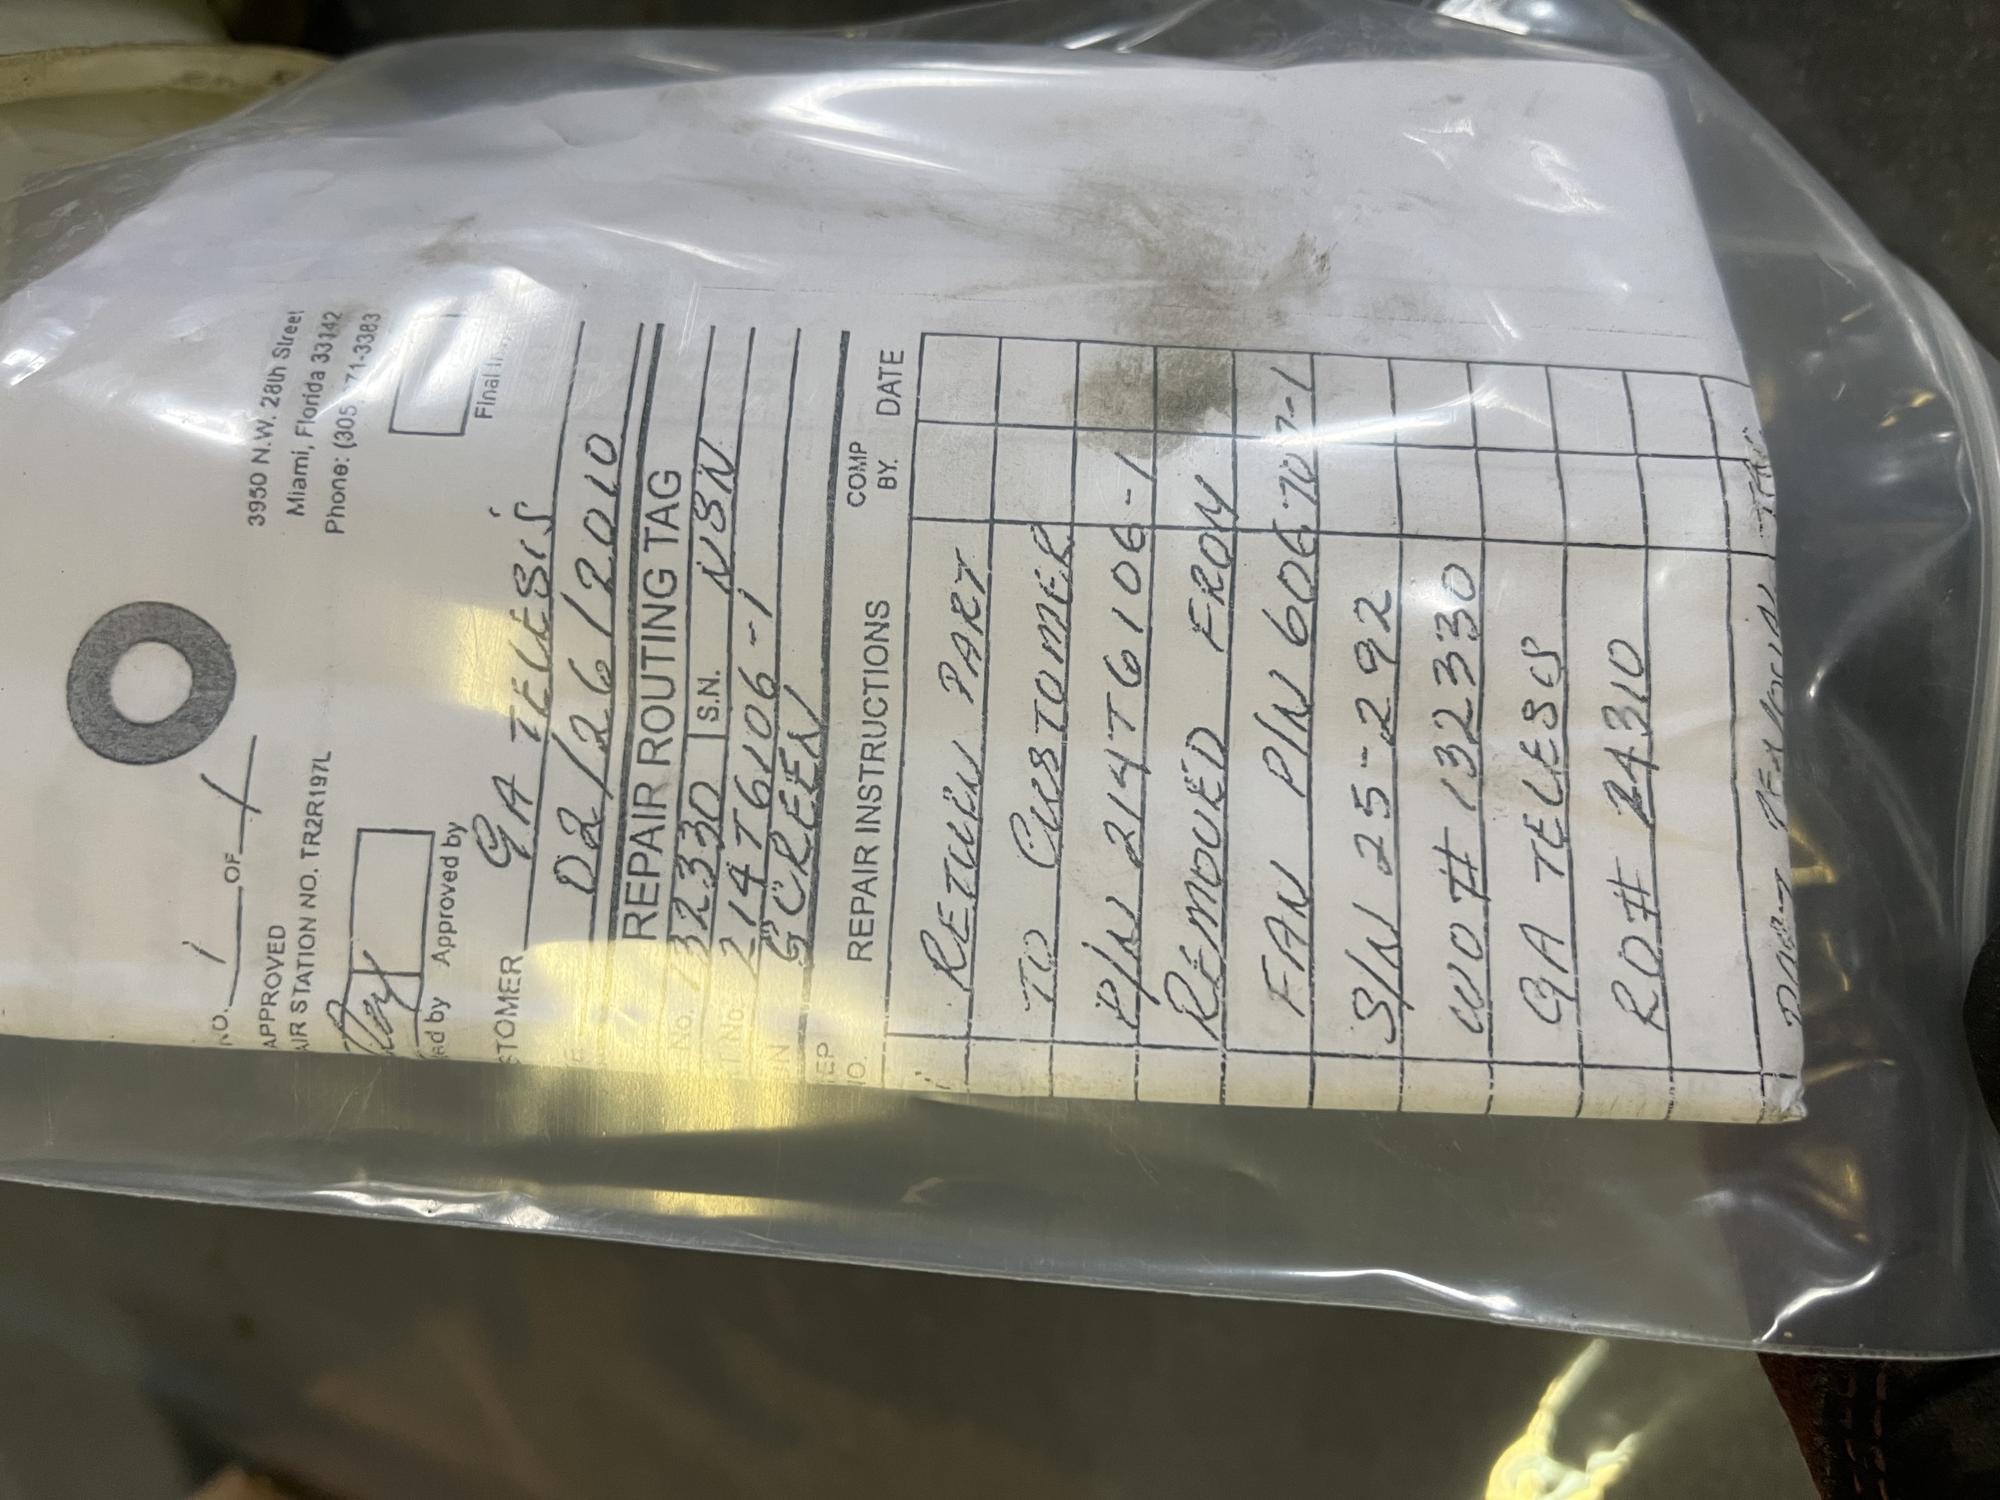 NO. 1 OF 1
APPROVED
AIR STATION NO. TR2R197L
3950 N.W. 28th Street
Miami, Florida 33142
Phone: (305 71-3383
Approved by
Final
STOMER GA TELESIS
02/26/2010
REPAIR ROUTING TAG
NO. 132330 S.N. NSN
214T6106-1
SCREEN
EP
NO. REPAIR INSTRUCTIONS COMP BY. DATE
RETURN PART
TO CUSTOMER
P/N 214T6106-1
REMOVED FROM
FAN P/N 606707-1
S/N 25-292
WO# 132330
GA TELESIS
RO# 24310